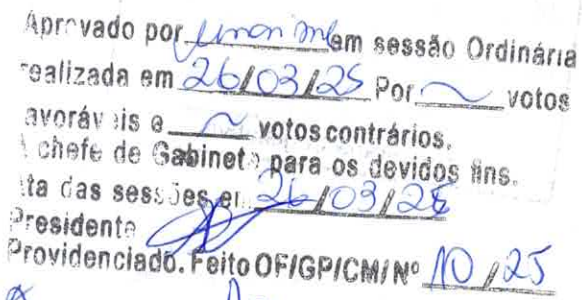 Aprovado por unanime em sessão Ordinária
realizada em 26/03/25 Por ~ votos
avoráveis e ~ votos contrários.
A chefe de Gabinete para os devidos fins.
ta das sessões em 26/03/25
Presidente
Providenciado. Feito OF/GP/CM/Nº 10/25